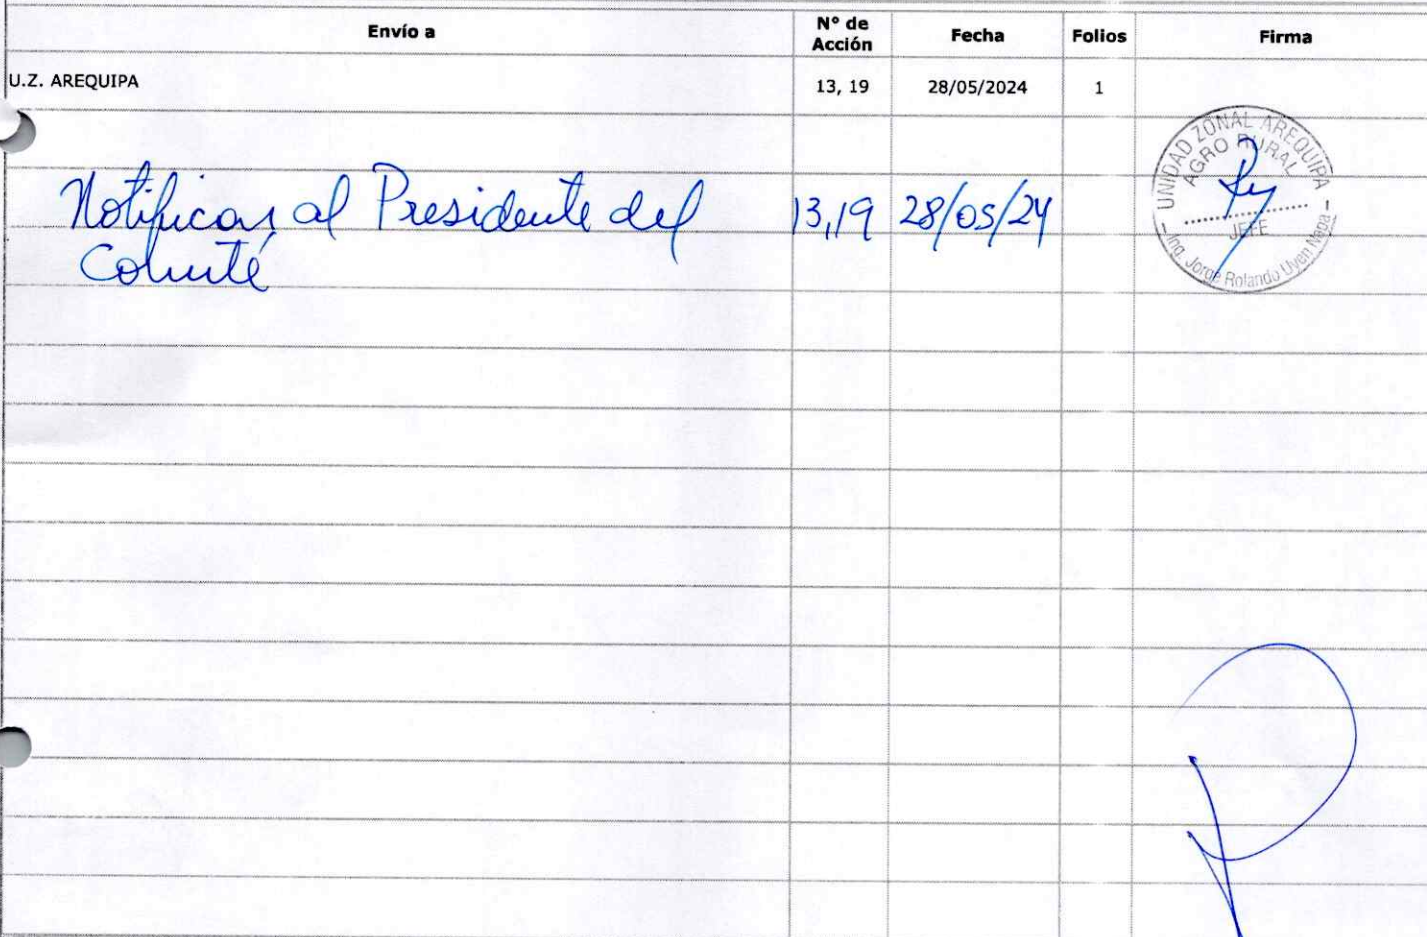 Envío a N° de Acción Fecha Folios Firma
U.Z. AREQUIPA 13, 19 28/05/2024 1
Notificar al Presidente del 13,19 28/05/24
Comité
UNIDAD ZONAL AREQUIPA
AGRO RURAL
JEFE
Ing. Jorge Rolando